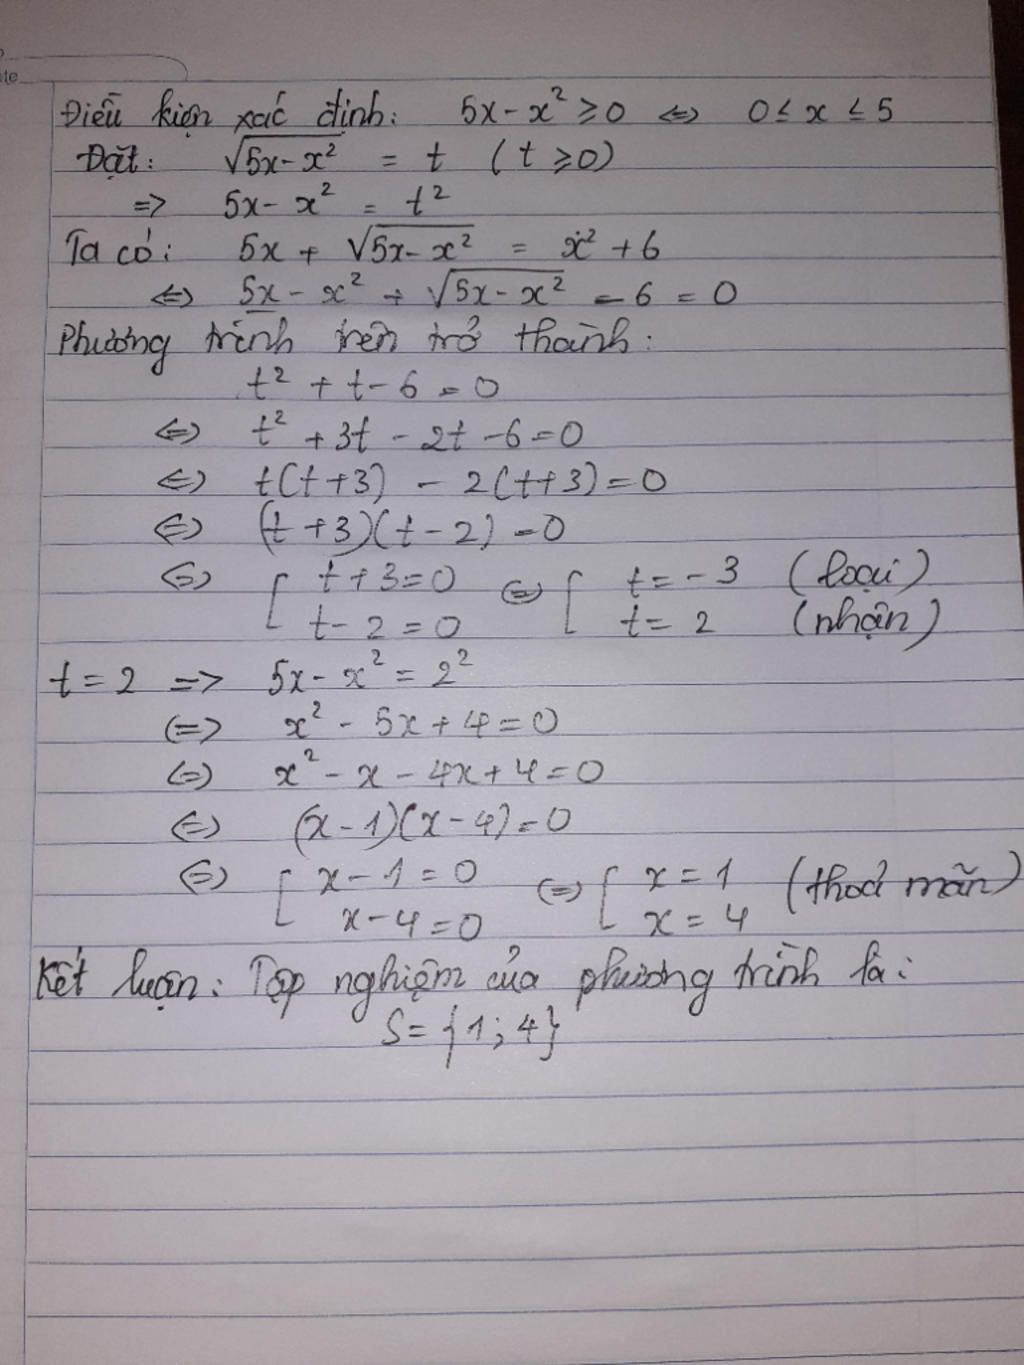 Điều kiện xác định: 5x - x² ≥ 0 <=> 0 ≤ x ≤ 5
Đặt: √(5x - x²) = t (t ≥ 0)
=> 5x - x² = t²
Ta có: 5x + √(5x - x²) = x² + 6
<=> 5x - x² + √(5x - x²) - 6 = 0
Phương trình trên trở thành:
t² + t - 6 = 0
<=> t² + 3t - 2t - 6 = 0
<=> t(t + 3) - 2(t + 3) = 0
<=> (t + 3)(t - 2) = 0
<=> [ t + 3 = 0 <=> [ t = -3 (loại)
t - 2 = 0 t = 2 (nhận)
t = 2 => 5x - x² = 2²
<=> x² - 5x + 4 = 0
<=> x² - x - 4x + 4 = 0
<=> (x - 1)(x - 4) = 0
<=> [ x - 1 = 0 <=> [ x = 1 (thoả mãn)
x - 4 = 0 x = 4
Kết luận: Tập nghiệm của phương trình là:
S = {1; 4}